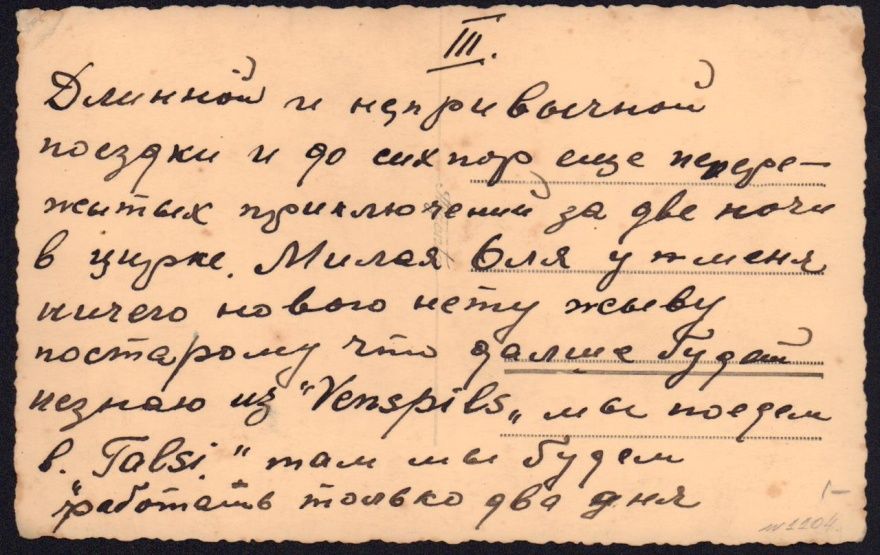 III.
Длинной и непривычной
поездки и до сих пор еще непере-
житых приключений за две ночи
в цирке. Милая Оля у меня
ничего нового нету жыву
постарому что далше будет
незнаю из "Venspils„ мы поедем
в. „Talsi" там мы будем
работать только два дня
1-